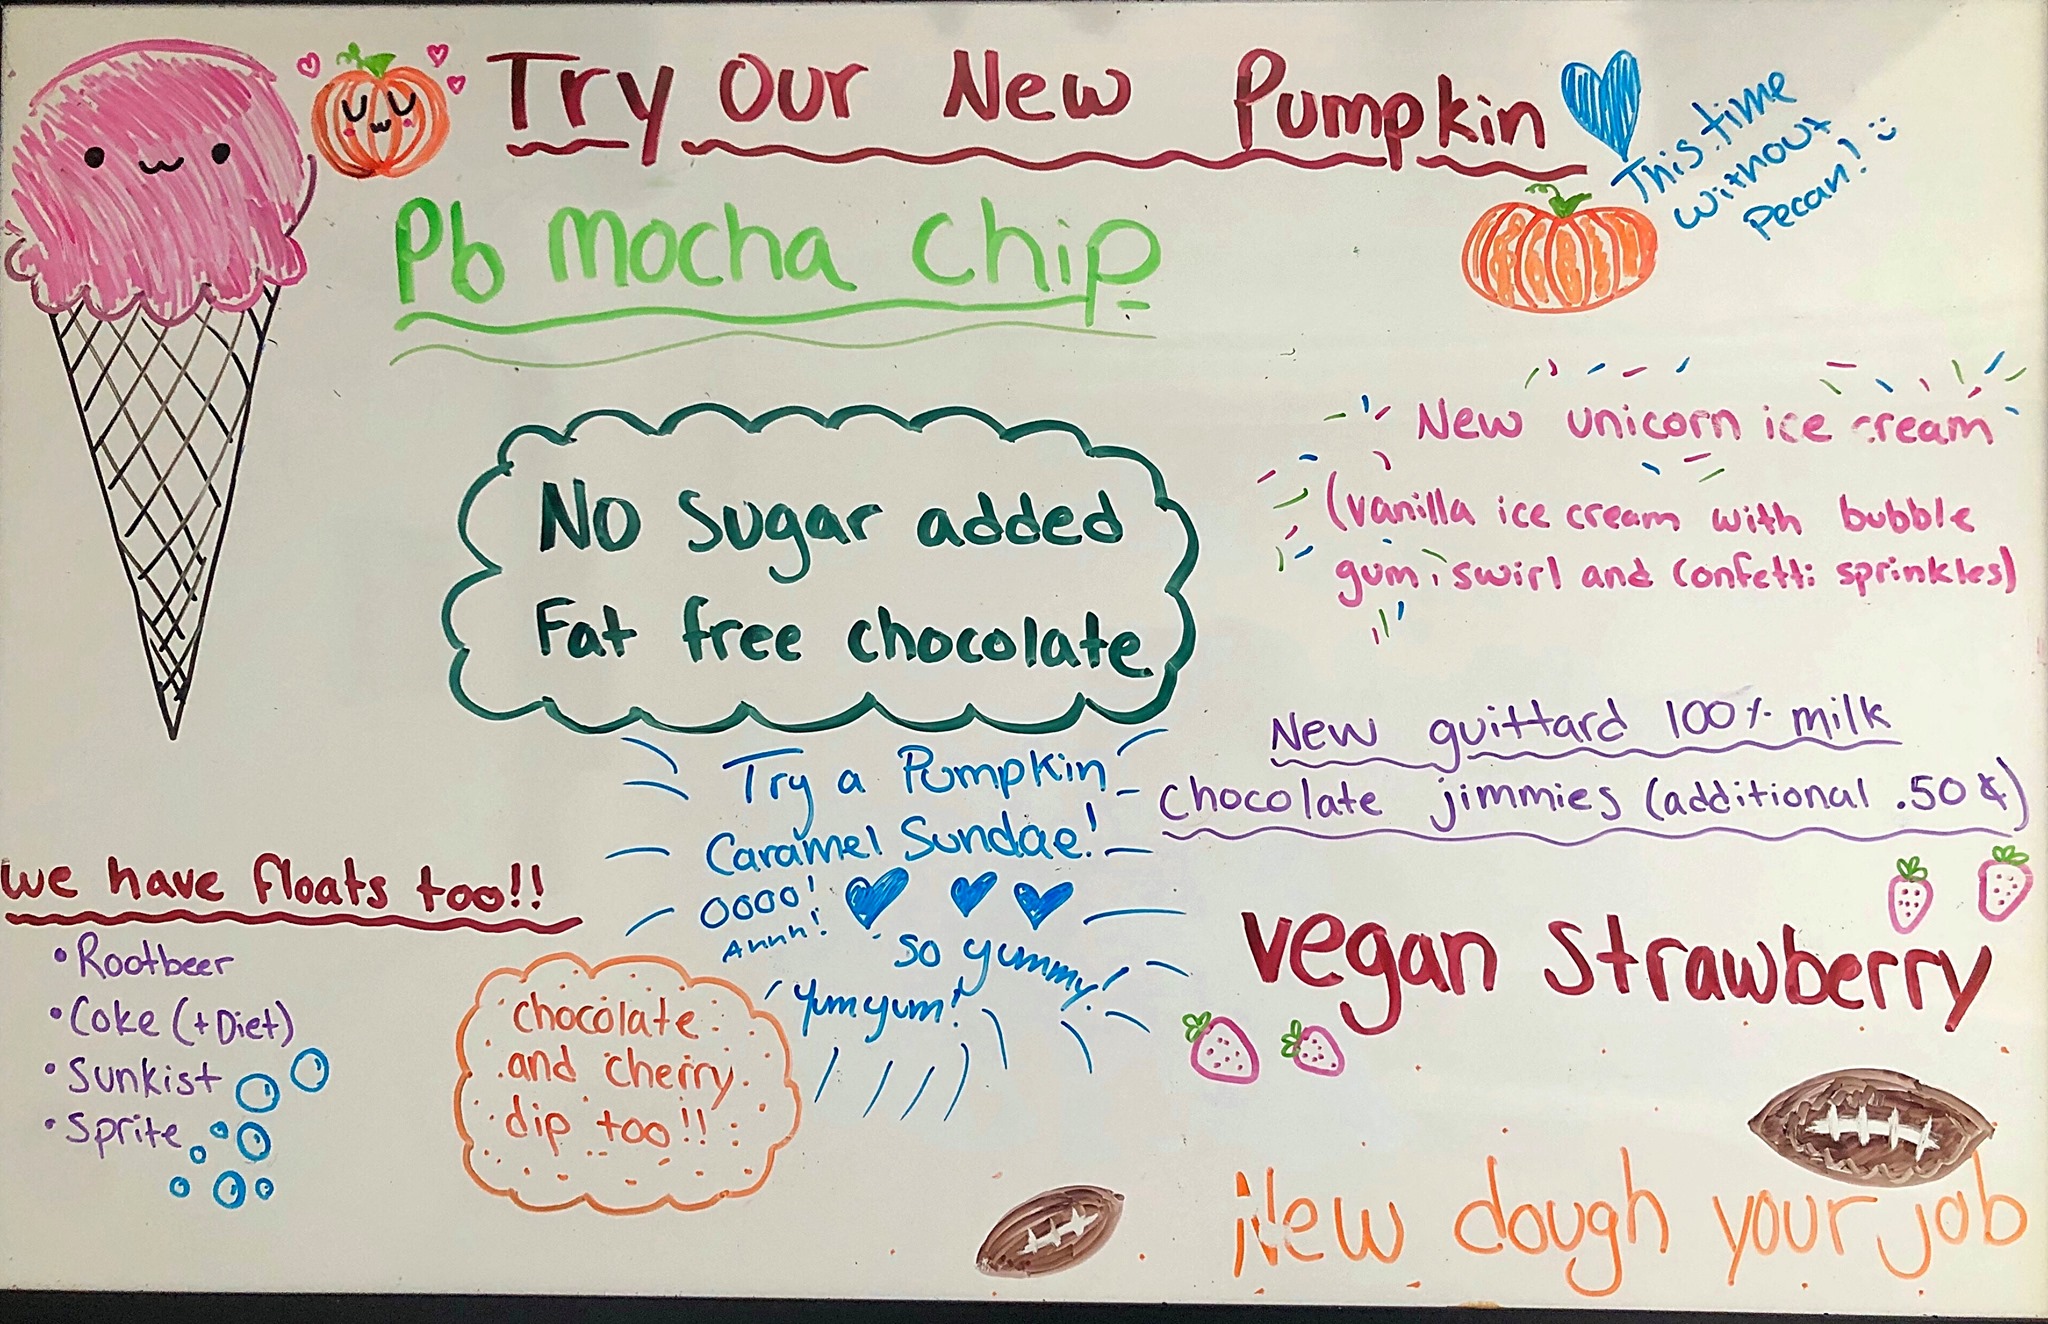 Try Our New Pumpkin
This time
without
Pecan!
Pb mocha chip
No Sugar added
Fat free chocolate
New unicorn ice cream
(vanilla ice cream with bubble
gum swirl and confetti sprinkles)
New guittard 100% milk
chocolate jimmies (additional .50¢)
Try a Pumpkin
Caramel Sundae!
OOOO!
Ahhh!
so yummy!
Yum yum!
we have floats too!!
• Rootbeer
• Coke (+Diet)
• Sunkist
• Sprite
chocolate
and cherry
dip too!!
vegan strawberry
New dough your job